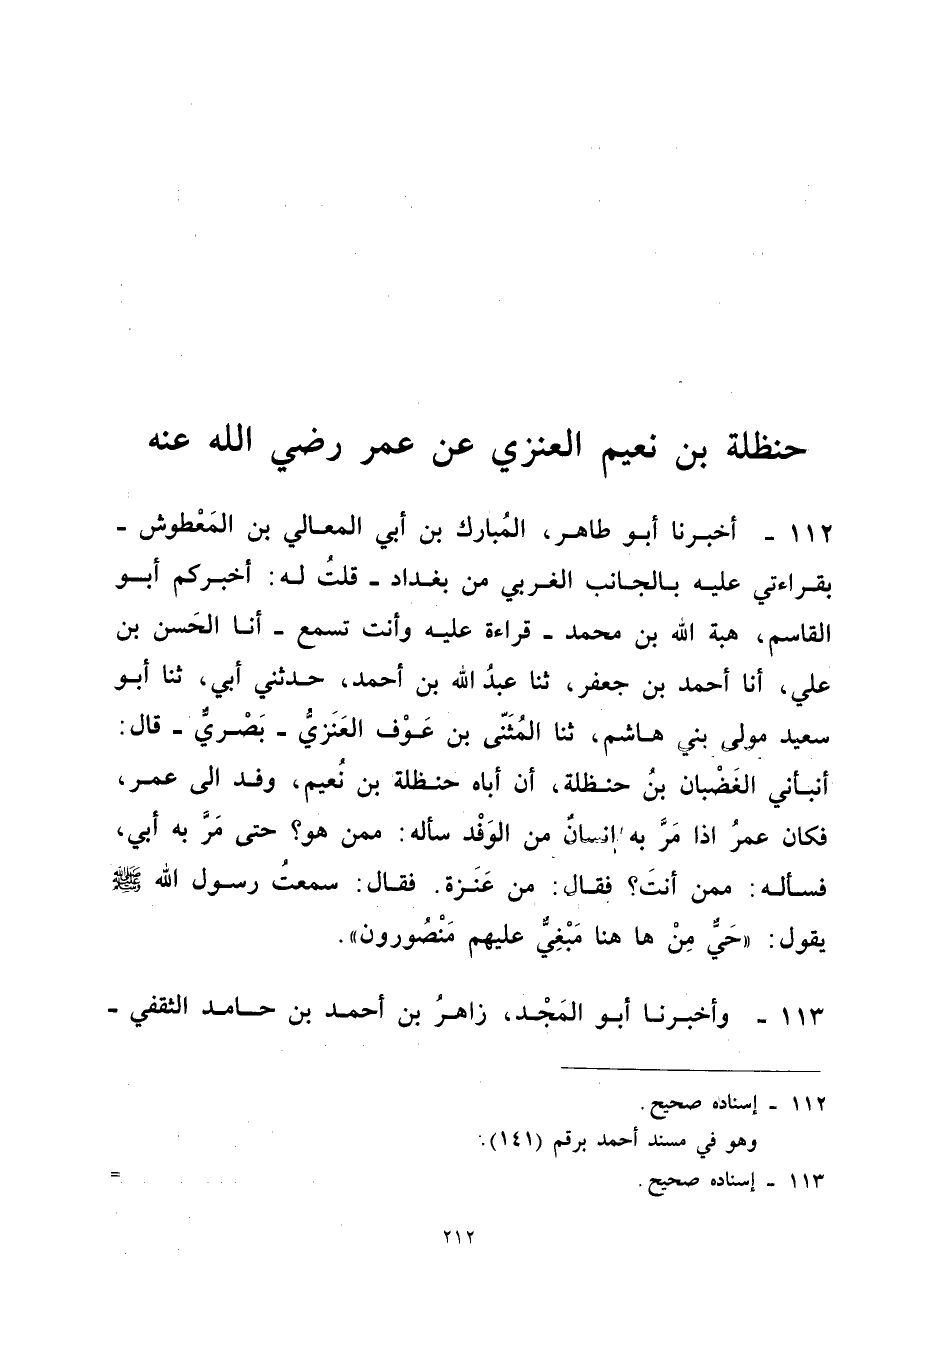 حنظلة بن نعيم العنزي عن عمر رضي الله عنه
١١٢ - أخبرنا أبو طاهر، المُبارك بن أبي المعالي بن المَعْطوش -
بقراءتي عليه بالجانب الغربي من بغداد - قلتُ له: أخبركم أبو
القاسم، هبة الله بن محمد - قراءة عليه وأنت تسمع - أنا الحَسن بن
علي، أنا أحمد بن جعفر، ثنا عبدُ الله بن أحمد، حدثني أبي، ثنا أبو
سعيد مولى بني هاشم، ثنا المُثَنّى بن عَوْف العَنَزيُّ - بَصْريٌّ - قال:
أنبأني الغَضْبان بنُ حنظلة، أن أباه حنظلة بن نُعيم، وفد الى عمر،
فكان عمرُ اذا مَرَّ به إنسانٌ من الوَفْد سأله: ممن هو؟ حتى مَرَّ به أبي،
فسأله: ممن أنتَ؟ فقال: من عَنَزة. فقال: سمعتُ رسول الله ﷺ
يقول: «حَيٌّ مِنْ ها هنا مَبْغِيٌّ عليهم مَنْصُورون».
١١٣ - وأخبرنا أبو المَجْد، زاهرُ بن أحمد بن حامد الثقفي -
١١٢ - إسناده صحيح.
وهو في مسند أحمد برقم (١٤١).
١١٣ - إسناده صحيح. =
٢١٢